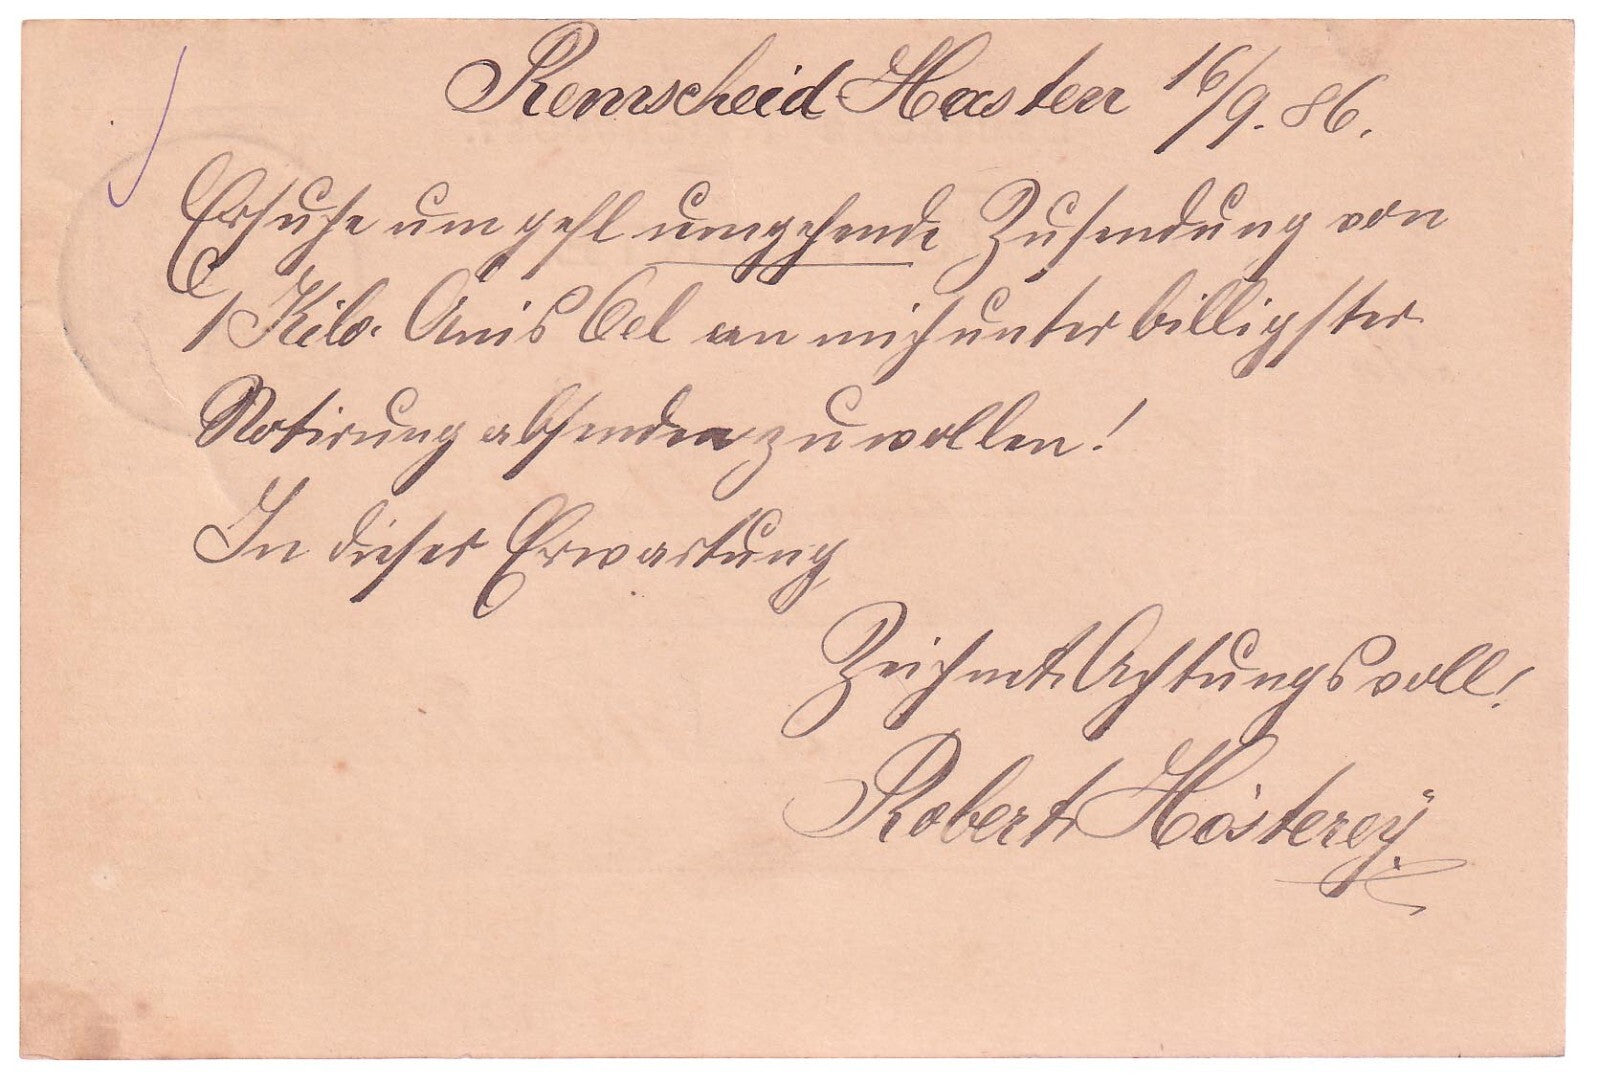 Remscheid Hasten 16/9. 86.
Ersuche um gefl umgehende Zusendung von
1 Kilo. Anis Oel an mich unter billigster
Notirung absenden zu wollen!
In dieser Erwartung
Zeichnet Achtungsvoll!
Robert Hösterey.